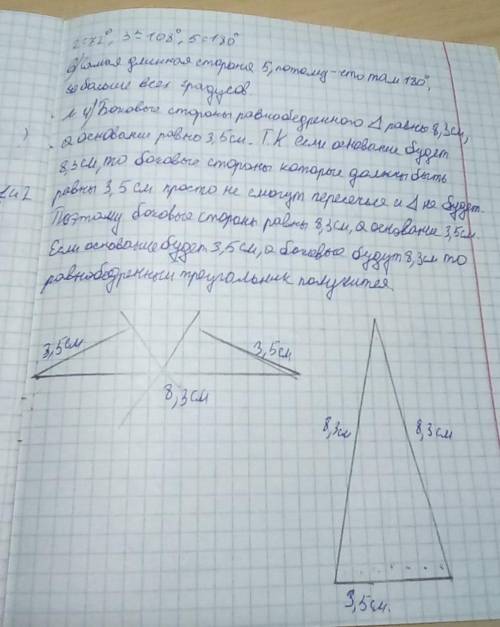 2=72°, 3=108°, 5=180°
б) самая длинная сторона 5, потому-что там 180°,
больше всех градусов
4) Боковые стороны равнобедренного Δ равны 8,3см,
а основание равно 3,5см. Т.К если основание будет
8,3см, то боковые стороны которые должны быть
равны 3,5 см просто не смогут пересечься и Δ не будет.
Поэтому боковые стороны равны 8,3см, а основание 3,5см.
Если основание будет 3,5см, а боковые будут 8,3см то
равнобедренный треугольник получится
3,5см 3,5см
8,3см
8,3см 8,3см
3,5см.